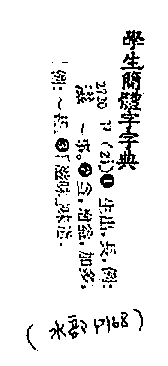 學生簡體字字典
2720 ㄗ (21)❶ 生出，長，例：
滋 ～事。❷益，增益，加多，
例：～ ❸「滋味」味道。
(水部 P168)